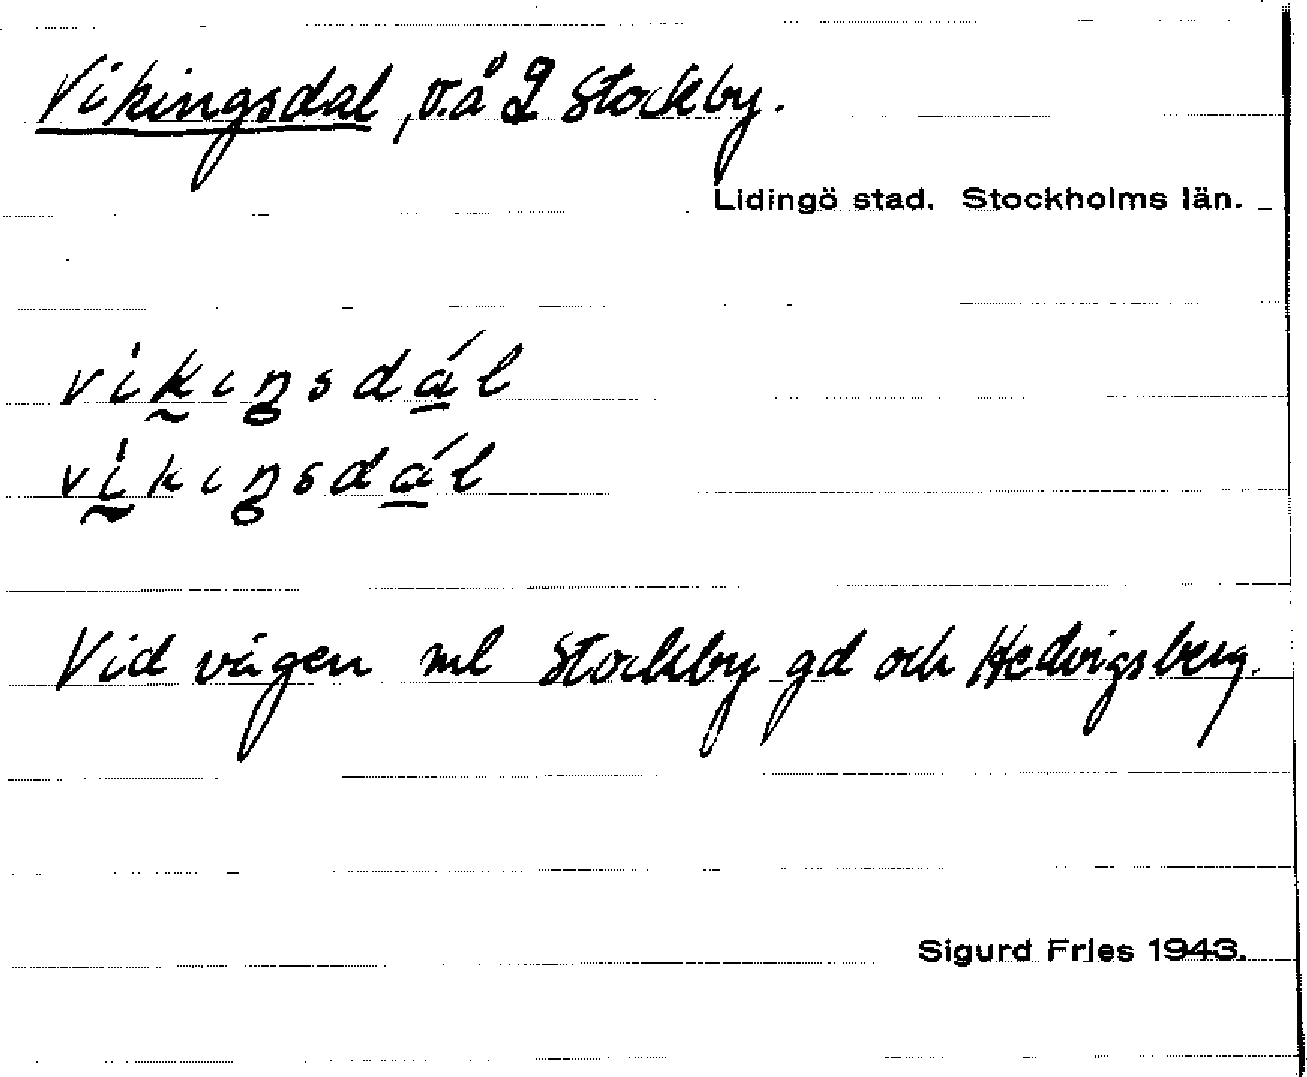 Vikingsdal, v.å 2 Stockby.
Lidingö stad. Stockholms län.
vikiŋsdál
vikiŋsdál
Vid vägen ml Stockby gd och Hedvigsberg.
Sigurd Fries 1943.